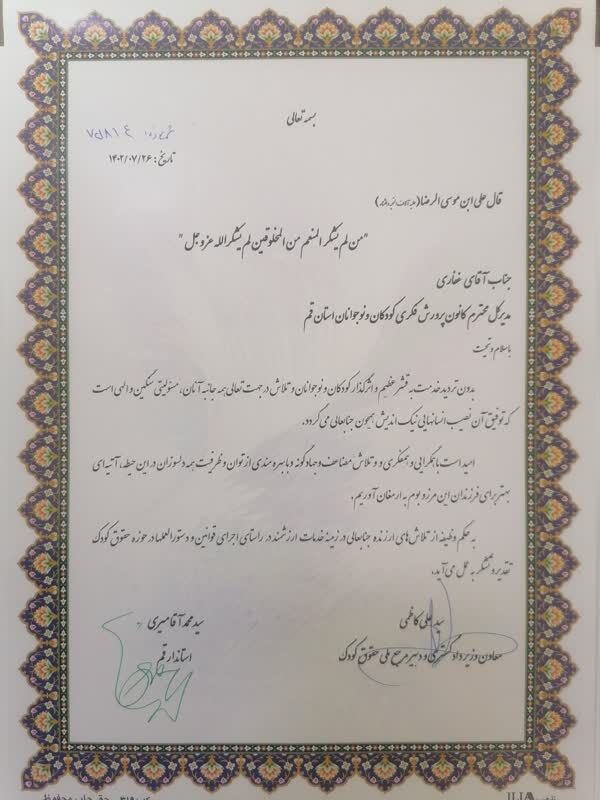 بسمه تعالی
شماره: ۷۵۸۱۴
تاریخ: ۱۴۰۲/۰۷/۲۶
قال علی ابن موسی الرضا
"من لم یشکر المنعم من المخلوقین لم یشکر الله عزوجل"
جناب آقای غفاری
مدیرکل محترم کانون پرورش فکری کودکان و نوجوانان استان قم
باسلام و تحیت
بدون تردید خدمت به قشر عظیم و اثرگذار کودکان و نوجوانان و تلاش در جهت تعالی همه جانبه آنان، مسئولیتی سنگین و الهی است
که توفیق آن نصیب انسانهایی نیک اندیش همچون جنابعالی می گردد.
امید است با همگرایی و همفکری و و تلاش مضاعف و جهادگونه و با بهره مندی از توان و ظرفیت همه دلسوزان در این حیطه، آتیه ای
بهتر برای فرزندان این مرز و بوم به ارمغان آوریم.
به حکم وظیفه از تلاش های ارزنده جنابعالی در زمینه خدمات ارزشمند در راستای اجرای قوانین و دستورالعملها در حوزه حقوق کودک
تقدیر و تشکر به عمل می آید.
سید علی کاظمی
معاون وزیر دادگستری و دبیر مرجع ملی حقوق کودک
سید محمد آقامیری
استاندار قم
JLIA